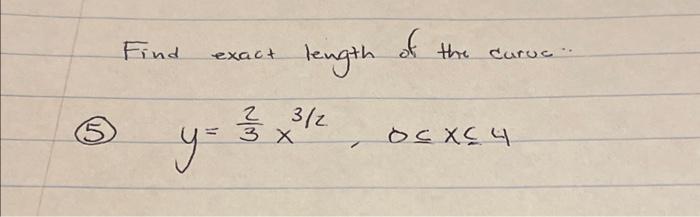 Find exact length of the curve..
⑤ y = 2/3 x^3/2, 0 ≤ x ≤ 4